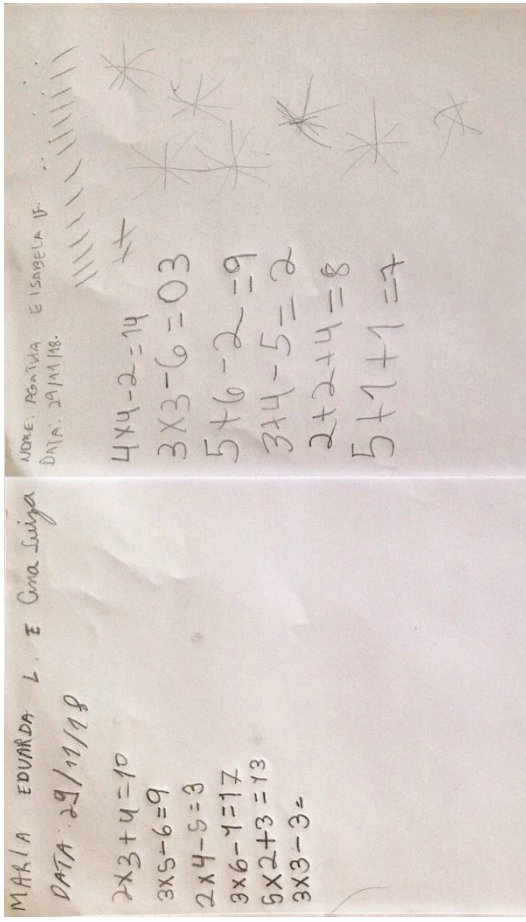 MARIA EDUARDA L. E Ana Luiza
DATA: 29/11/18
2x3+4=10
3x5-6=9
2x4-5=3
3x6-1=17
5x2+3=13
3x3-3=
NOME: AGATHA E ISABELA V.
DATA: 29/11/18.
4x4-2=14
3x3-6=03
5+6-2=9
3+4-5=2
2+2+4=8
5+1+1=7